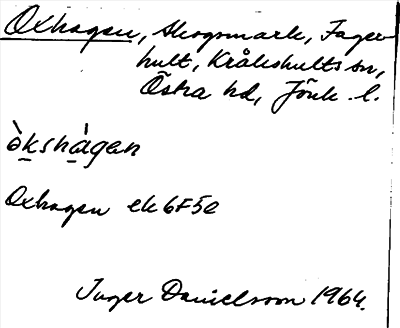 Oxhagen, skogsmark, Fager-
hult, Kråkshults sn,
Östra hd, Jönk. l.
òkshàgan
Oxhagen ek 6F5e
Inger Danielsson 1964.